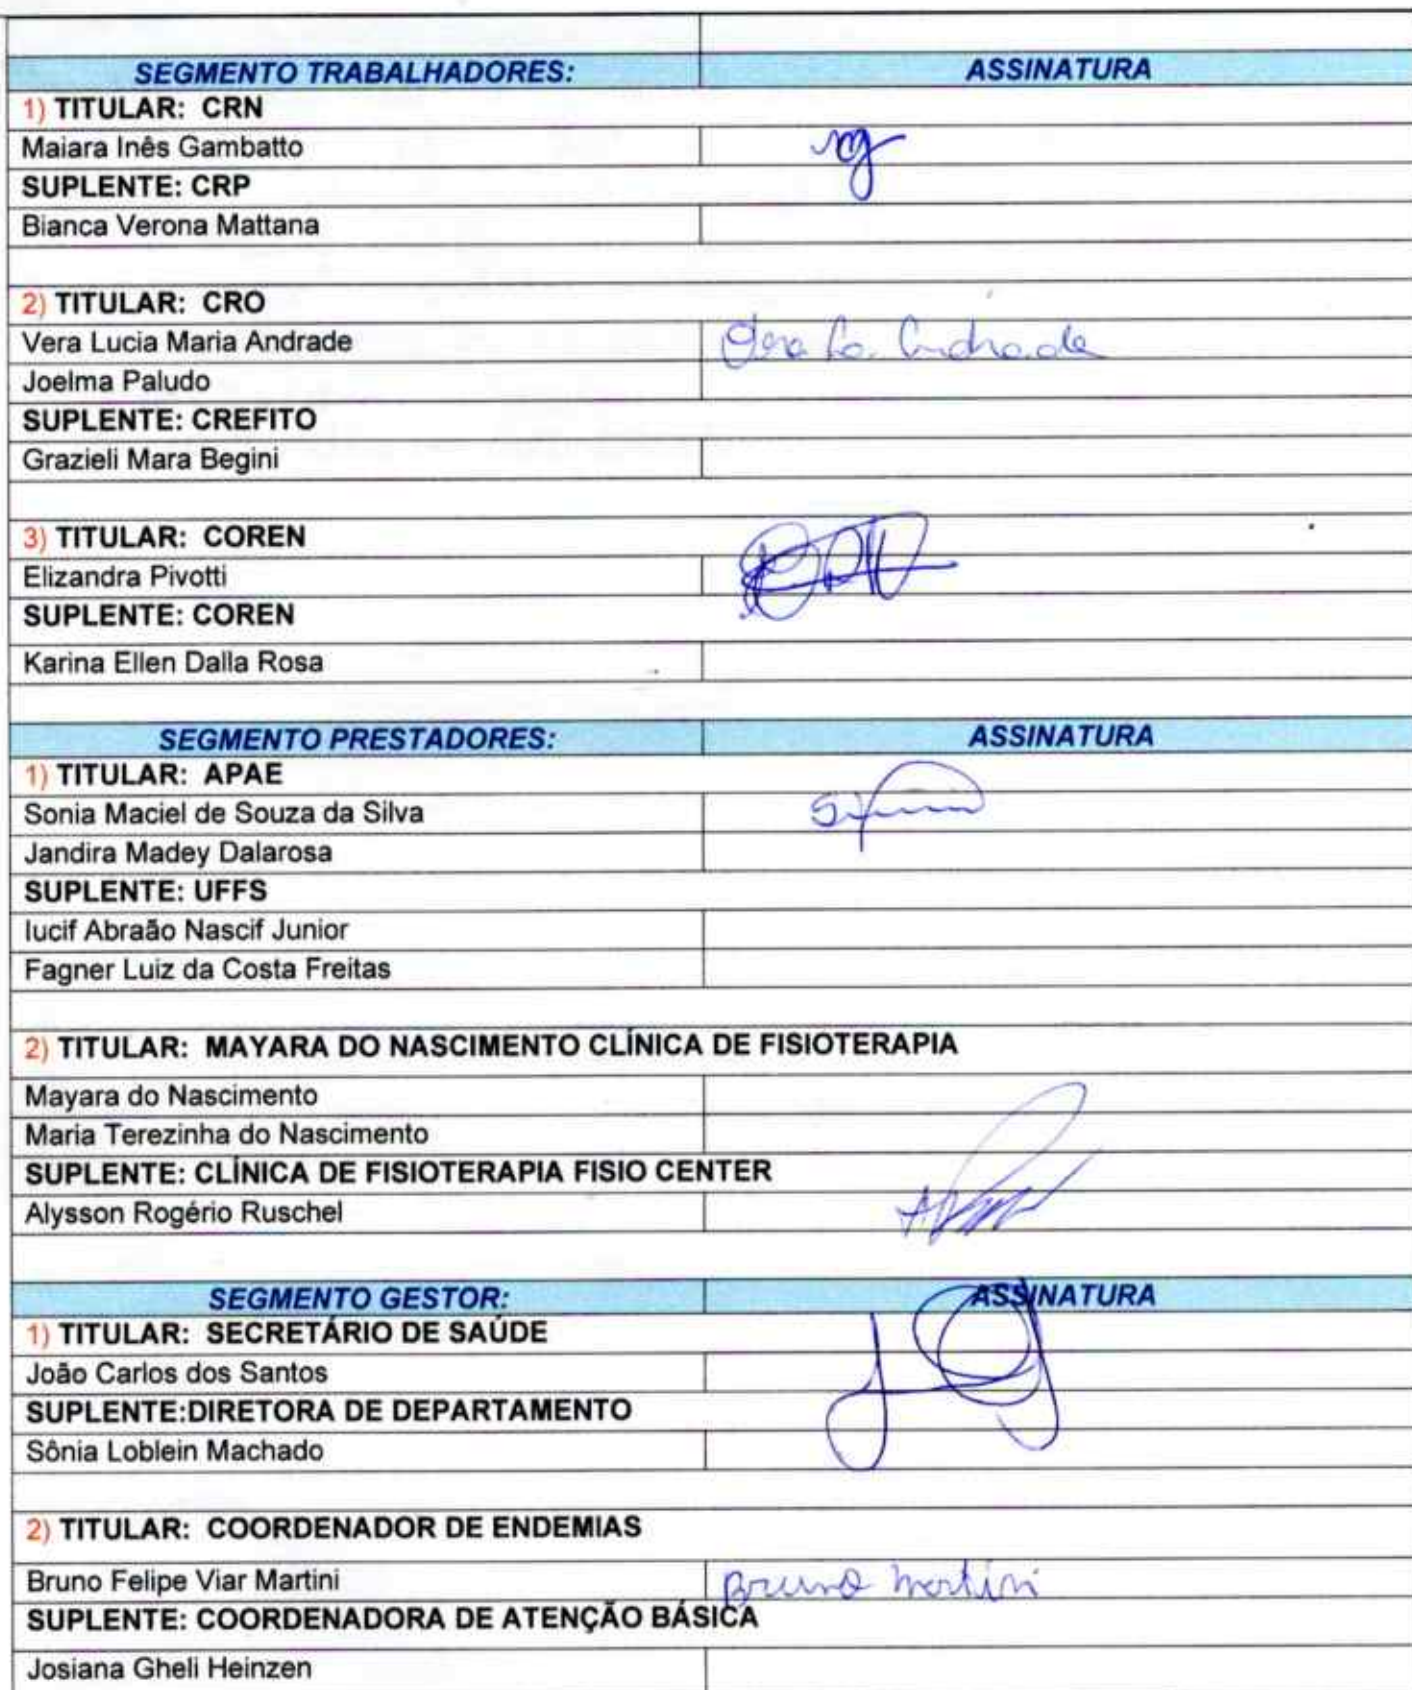 SEGMENTO TRABALHADORES: ASSINATURA
1) TITULAR: CRN
Maiara Inês Gambatto
SUPLENTE: CRP
Bianca Verona Mattana
2) TITULAR: CRO
Vera Lucia Maria Andrade
Joelma Paludo
SUPLENTE: CREFITO
Grazieli Mara Begini
3) TITULAR: COREN
Elizandra Pivotti
SUPLENTE: COREN
Karina Ellen Dalla Rosa
SEGMENTO PRESTADORES: ASSINATURA
1) TITULAR: APAE
Sonia Maciel de Souza da Silva
Jandira Madey Dalarosa
SUPLENTE: UFFS
Iucif Abraão Nascif Junior
Fagner Luiz da Costa Freitas
2) TITULAR: MAYARA DO NASCIMENTO CLÍNICA DE FISIOTERAPIA
Mayara do Nascimento
Maria Terezinha do Nascimento
SUPLENTE: CLÍNICA DE FISIOTERAPIA FISIO CENTER
Alysson Rogério Ruschel
SEGMENTO GESTOR: ASSINATURA
1) TITULAR: SECRETÁRIO DE SAÚDE
João Carlos dos Santos
SUPLENTE:DIRETORA DE DEPARTAMENTO
Sônia Loblein Machado
2) TITULAR: COORDENADOR DE ENDEMIAS
Bruno Felipe Viar Martini Bruno Martini
SUPLENTE: COORDENADORA DE ATENÇÃO BÁSICA
Josiana Gheli Heinzen